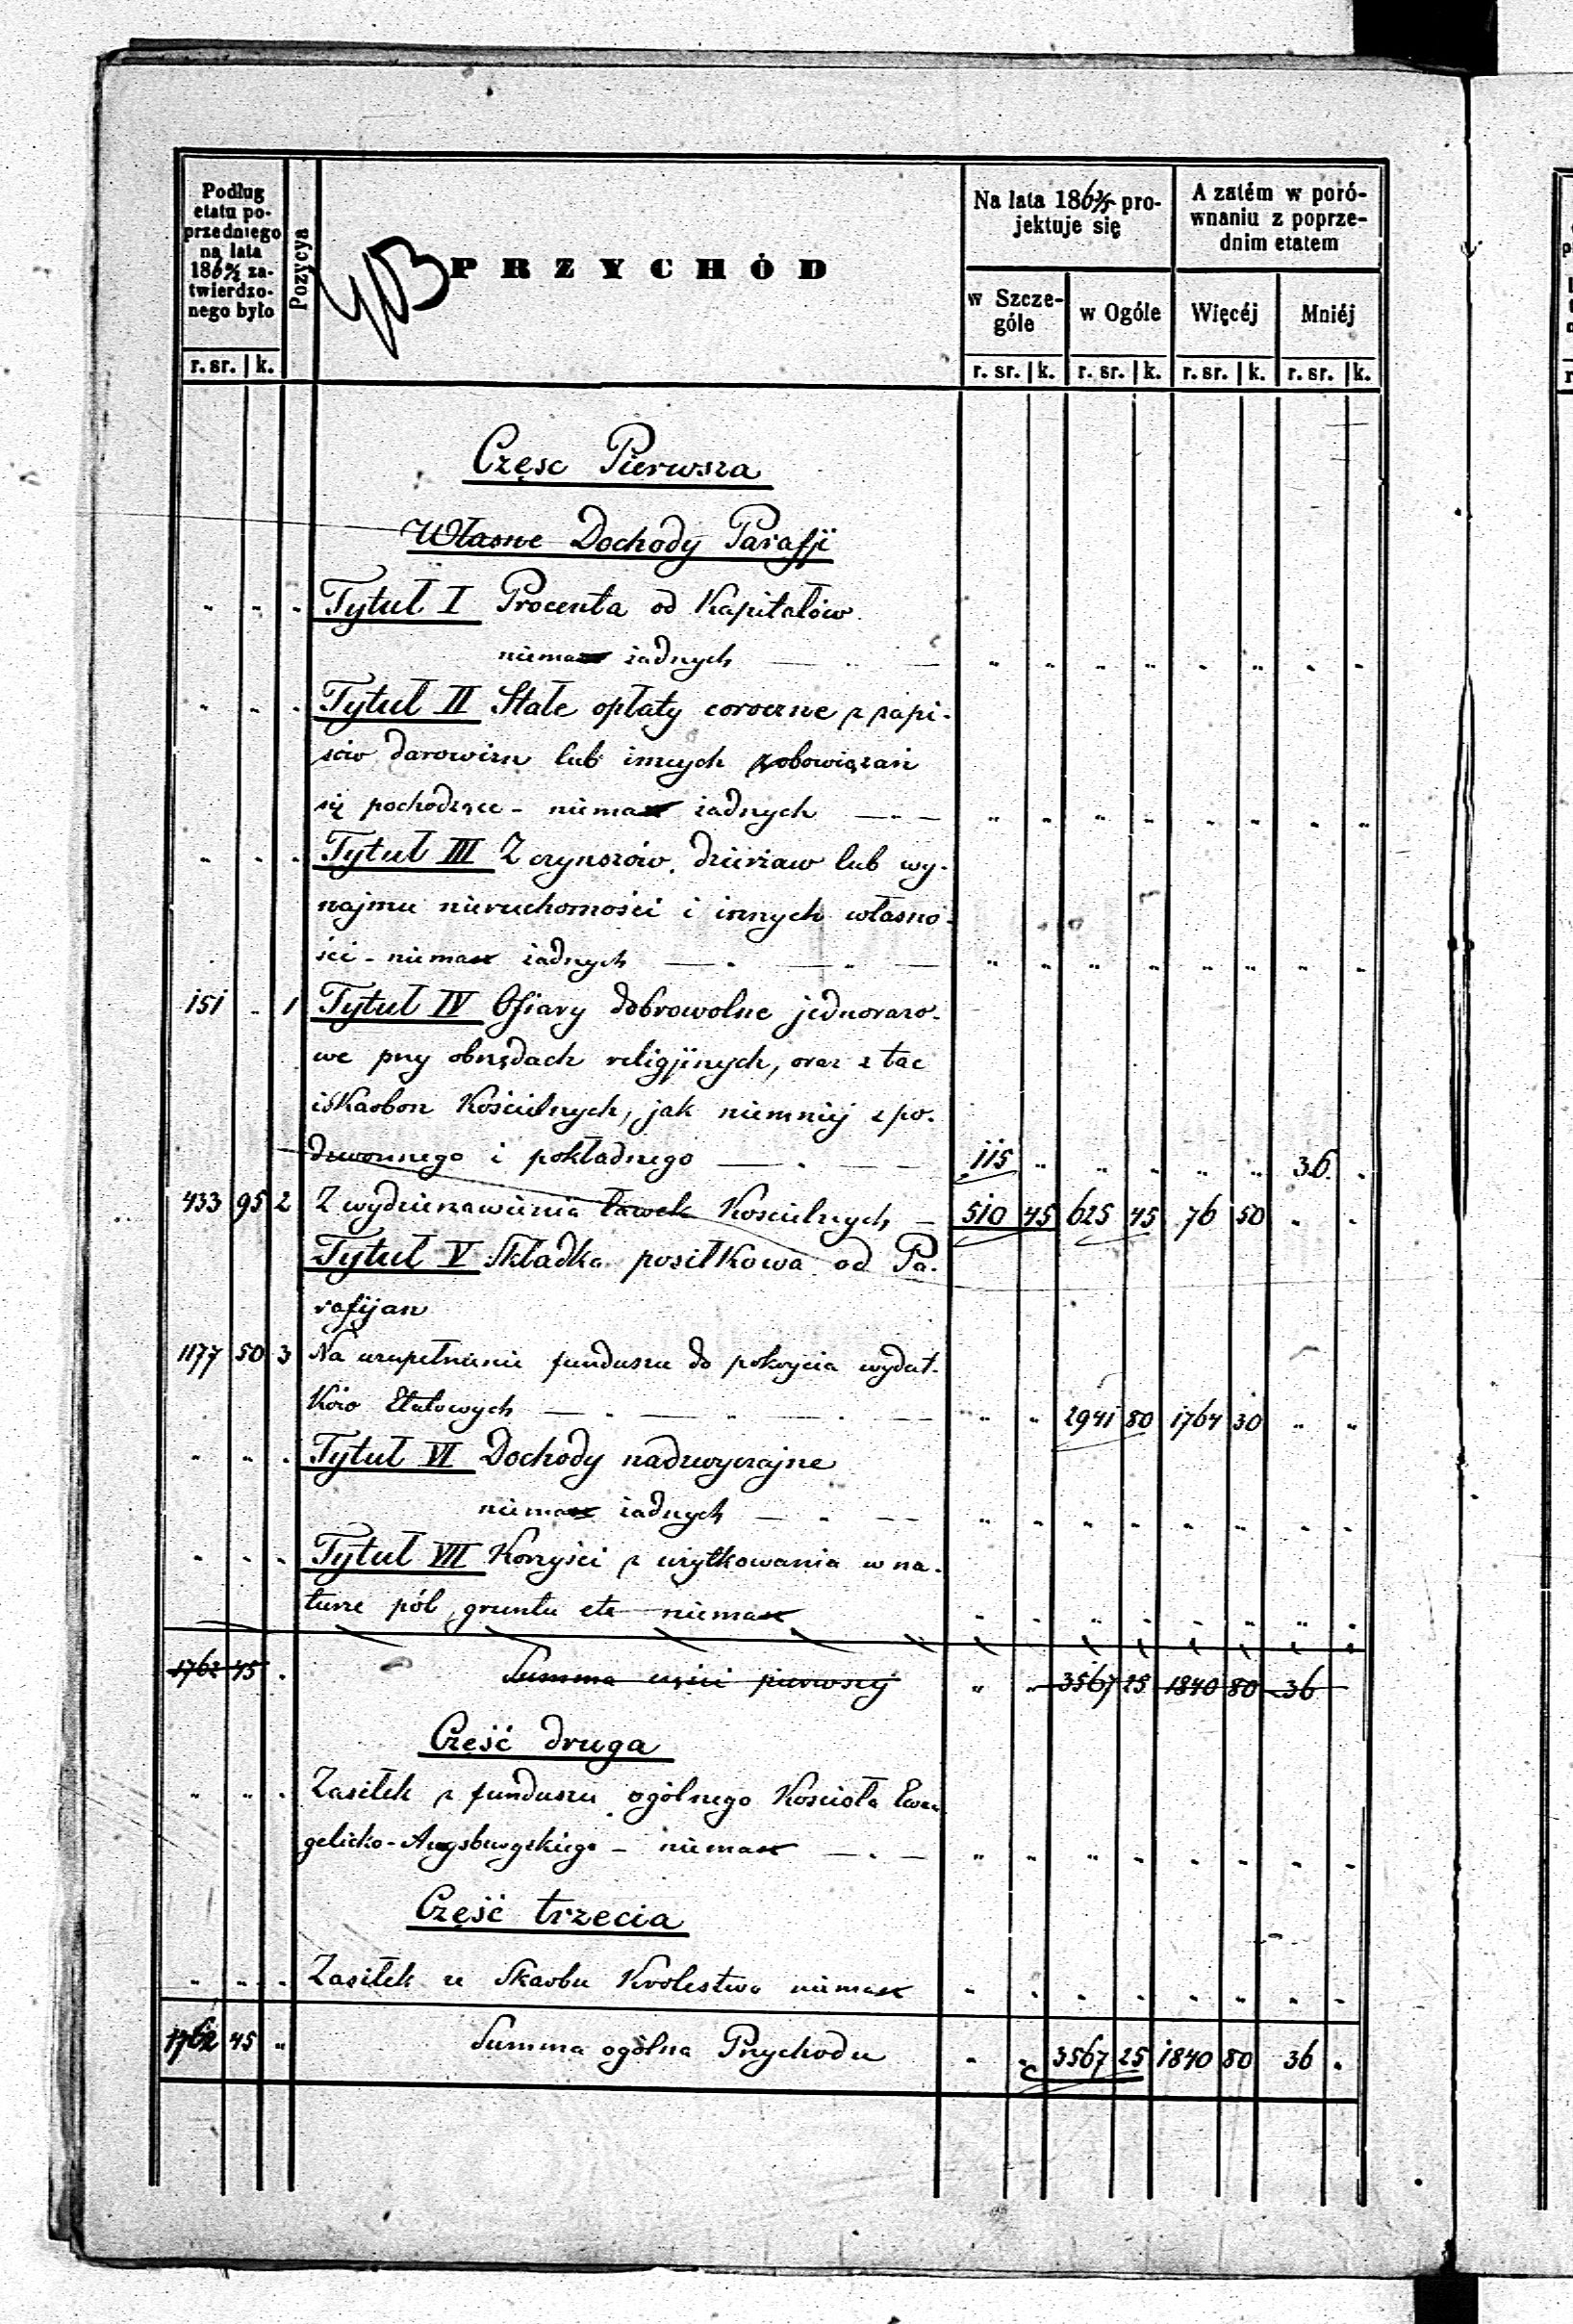 Podług
etatu po-
przedniego
na lata
186 0/2 za-
twierdzo-
nego było
r. sr. | k.
Pozycya
403
PRZYCHÓD
Na lata 186 3/5 pro-
jektuje się
w Szcze-
góle
w Ogóle
r. sr. | k. r. sr. | k.
A zatém w poró-
wnaniu z poprze-
dnim etatem
Więcéj Mniéj
r. sr. | k. r. sr. | k.
Częsc Pierwsza
Własne Dochody Parafji
" " " Tytuł I Procenta od Kapitałów
niema żadnych — " — " " " " " " " "
" " " Tytuł II Stałe opłaty coroczne z zapi-
sów darowizn lub innych zobowiązań
się pochodzące - niema żadnych — " — " " " " " " " "
" " " Tytuł III Z czynszów, dzierżaw lub wy-
najmu nieruchomości i innych własno-
ści - niema żadnych — " — " — " " " " " " " "
151 " 1 Tytuł IV Ofiary dobrowolne jednorazo-
we przy obrzędach religijnych, oraz z tac
i skarbon Kościelnych, jak niemniej z po-
dzwonnego i pokładnego — " — 115 " " " " " 36 "
433 95 2 Z wydzierżawienia ławek Kościelnych — 510 45 625 45 76 50 " "
Tytuł V Składka posiłkowa od Pa-
rafijan
1177 50 3 Na uzupełnienie funduszu do pokrycia wydat-
ków Etatowych — " — " — " — " " 2941 80 1764 30 " "
" " " Tytuł VI Dochody nadzwyczajne
niema żadnych — " — " " " " " " " "
" " " Tytuł VII Korzyści z użytkowania w na-
turze pól, gruntu etc niema " " " " " " " "
1762 45 " Summa części pierwszej " " 3567 25 1840 80 36
Część druga
" " " Zasiłek z funduszu ogólnego Kościoła Ewan
gelicko-Augsburgskiego - niema — " — " " " " " " " "
Część trzecia
" " " Zasiłek ze Skarbu Krolestwa niema " " " " " " " "
1762 45 " Summa ogólna Przychodu " " 3567 25 1840 80 36 "